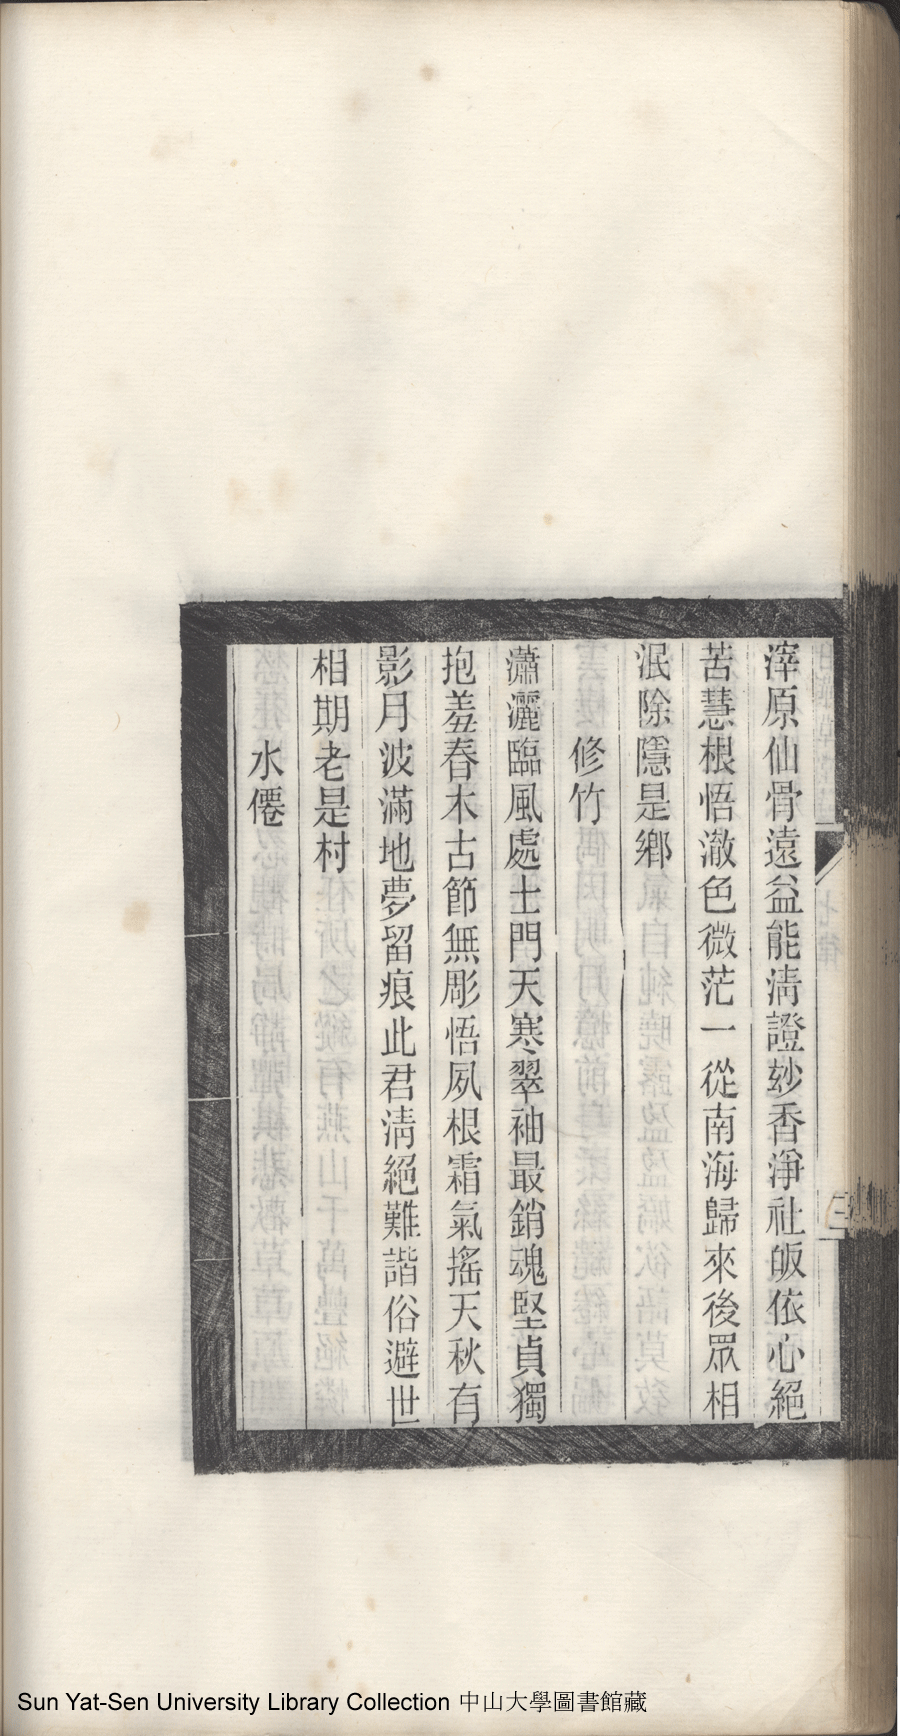 滓原仙骨遠益能淸證妙香淨社皈依心絕
苦慧根悟澈色微茫一從南海歸來後眾相
泯除隱是鄕
修竹
瀟灑臨風處土門天寒翠袖最銷魂堅貞獨
抱羞春木古節無彫悟夙根霜氣搖天秋有
影月波滿地夢留痕此君淸絕難諧俗避世
相期老是村
水僊
Sun Yat-Sen University Library Collection 中山大學圖書館藏